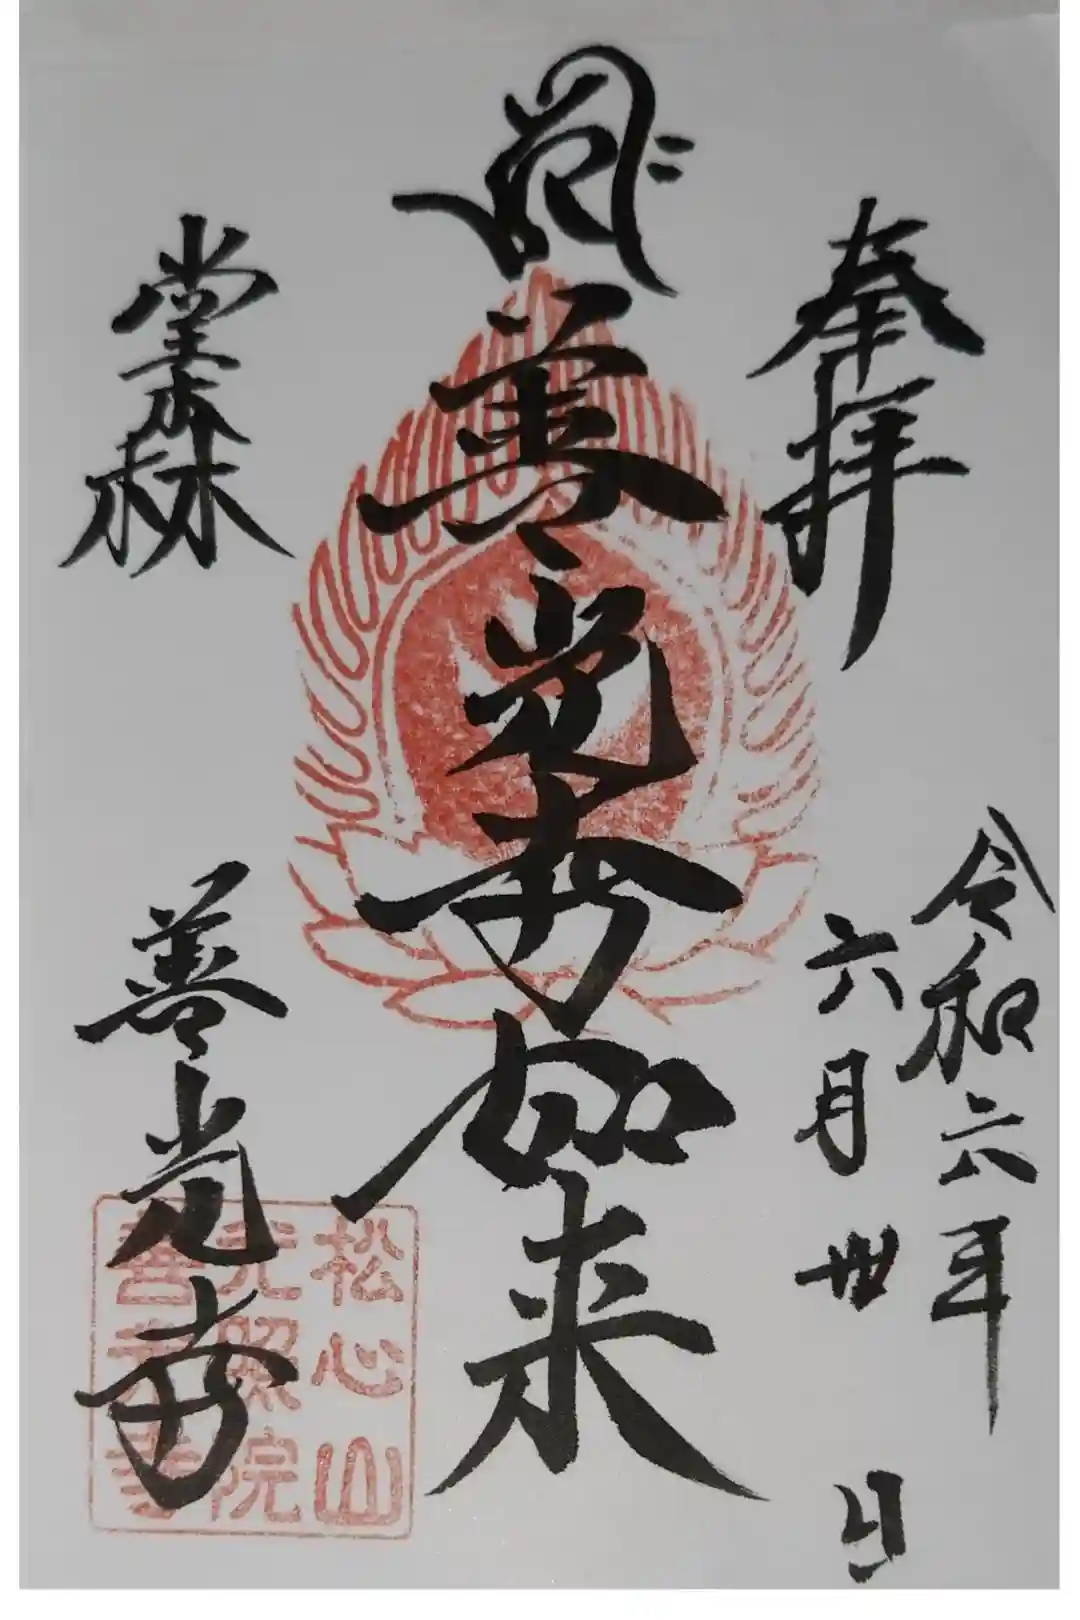 奉拝
令和六年
六月卅日
善光寺如来
堂森
善光寺
松心山
光照院
善光寺